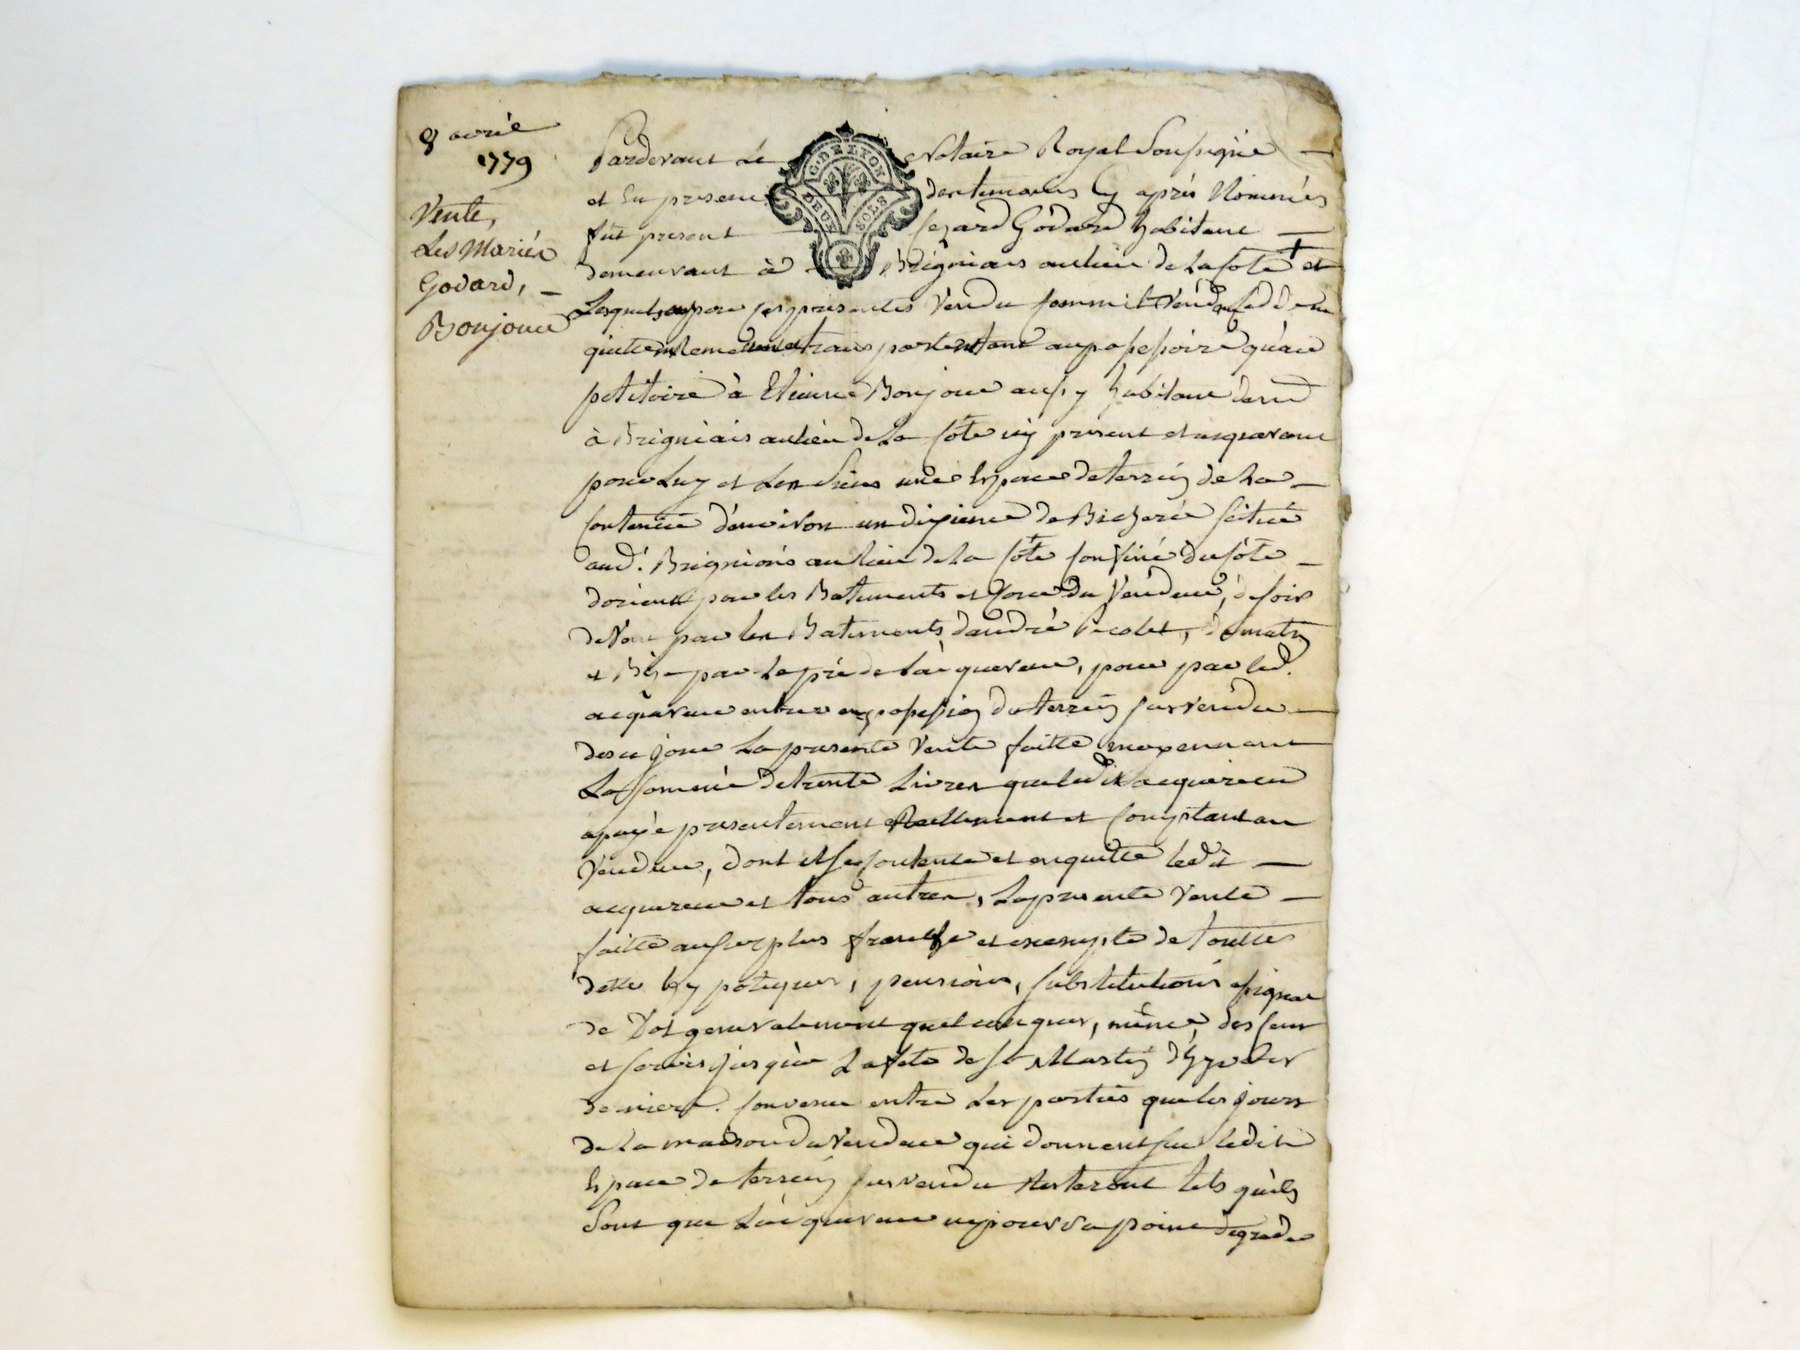 8 avril
1779
Vente,
Les Mariés
Godard,
Bonjour
G. DE LYON
DEUX SOLS
Pardevant Le Notaire Royal Soussigné
et En presence des temoins cy après Nommés
fut present Godard habitant
demeurant à Brigniais au lieu de La Cote et
Lesquels par ces presentes Vendu
au possessoire qu'au
petitoire à Etienne Bonjour aussy habitant dem
à Brigniais au lieu de La Cote icy present et acquereur
pour Luy et Les Siens une Espace de terrein de La
Contenue d'environ un dixieme de Bicherée scitué
aud. Brigniais au lieu de La Cote confiné du côté
d'orient par les Batiments et Cour du Vendeur, de soir
par les Batiments d'andré de matin
et Bise par Le pré de L'acquereur, pour par led.
acquereur entrer en possession du terrein survendu
des ce jour La presente Vente faitte moyennant
La Somme de trente Livres que ledit acquereur
a payé presentement Reellement et Comptant au
Vendeur, dont il se contente et en quitte ledit
acquereur et tous autres, La presente Vente
faitte au surplus franche et exempte de toutte
dette hypoteques, pensions, substitutions
de Dot generalement quelconques, même des cens
et servis jusqu'à La fete de St Martin d'hyver
derniere. Convenu entre Les parties que les jours
de La maison du Vendeur qui donnent sur ledit
Espace de terrein survendu Resteront tels qu'ils
Sont que L'acquereur ne pourra point